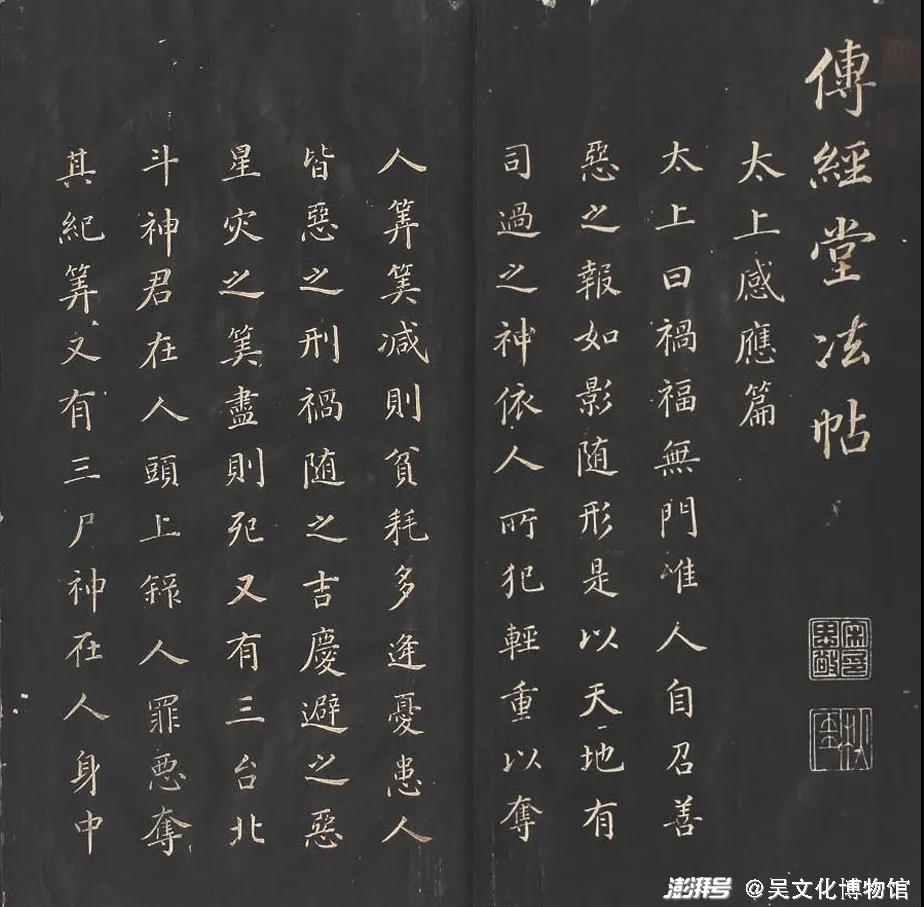 傳經堂法帖
太上感應篇
太上曰禍福無門唯人自召善
惡之報如影随形是以天地有
司過之神依人所犯輕重以奪
人筭筭减則貧耗多逢憂患人
皆惡之刑禍随之吉慶避之惡
星灾之筭盡則死又有三台北
斗神君在人頭上録人罪恶奪
其紀筭又有三尸神在人身中
澎湃号 @吴文化博物馆